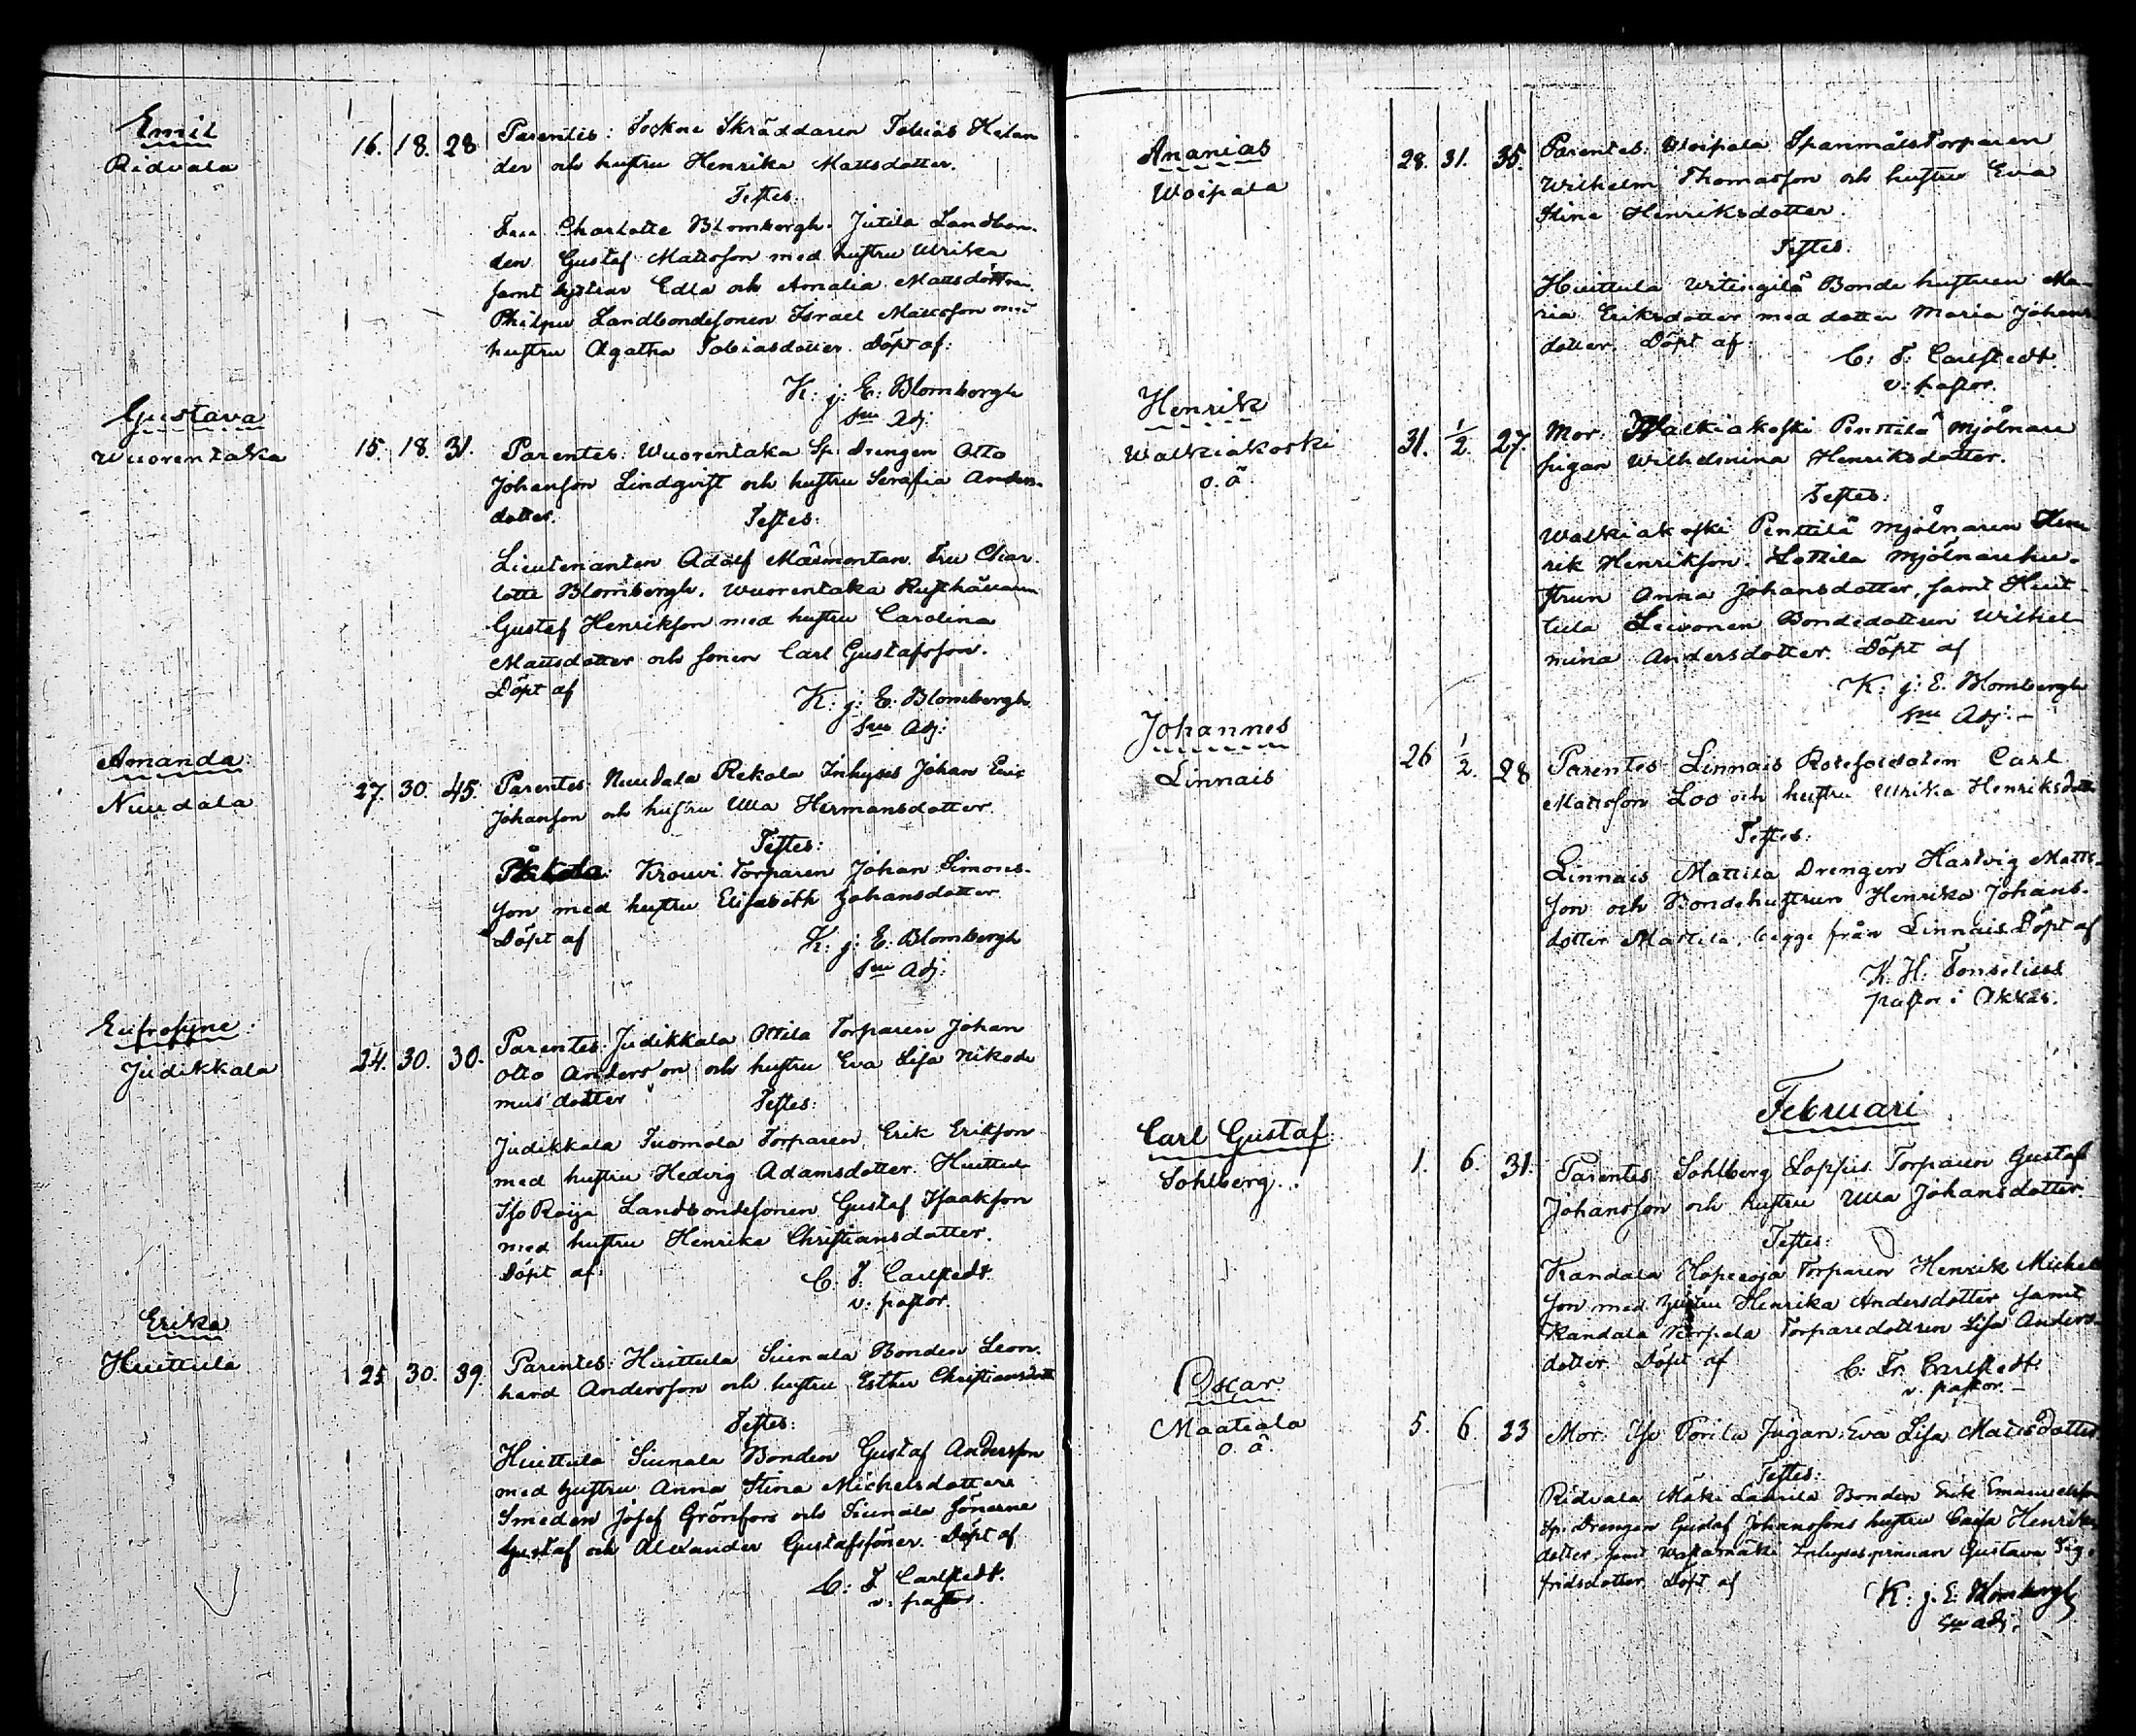 Emil
Ridvala
16. 18. 28
Parentes: Sockne Skräddaren Tobias Helan
der och hustru Henrika Mattsdotter.
Testes:
Fru Charlotte Blombergh. Jutila Landbon-
den Gustaf Matsson med hustru Ulrika
samt systrar Edla och Amalia Mattsdöttrar
Landbondesonen Israel Matsson med
hustru Agatha Tobiasdotter. Döpt af:
K: J: E: Blombergh
Sne Adj:
Gustava
Wuorentaka
15. 18. 31.
Parentes: Wuorentaka Sp. drengen Otto
Johansson Lindqvist och hustru Serafia Anders-
dotter.
Testes:
Lieutenanten Adolf Malmontan. Fru Char-
lotte Blombergh. Wuorentaka Rusthållaren
Gustaf Henriksson med hustru Carolina
Mattsdotter och sonen Carl Gustafsson.
Döpt af
K: J: E: Blombergh
Sne Adj:
Amanda:
Nuudala
27. 30. 45.
Parentes: Nuudala Rekola Inhyses Johan Eric
Johansson och hustru Ulla Hermansdotter.
Testes:
Krouvi Torparen Johan Simons-
son med hustru Elisabeth Johansdotter
Döpt af
K: J: E: Blombergh
Sne Adj:
Eufrosyne:
Judikkala
24. 30. 30.
Parentes: Judikkala Ottila Torparen Johan
Otto Andersson och hustru Eva Lisa Nikode
mus dotter
Testes:
Judikkala Tuomola Torparen Erik Eriksson
med hustru Hedvig Adamsdotter. Huittula
Iso Roija Landbondesonen Gustaf Isaaksson
med hustru Henrika Christiansdotter.
Döpt af:
C: F: Carlstedt.
v: pastor.
Erika
Huittula
25. 30. 39.
Parentes: Huittula Siunala Bonden Leon-
hard Andersson och hustru Esther Christiansdott
Testes:
Huittula Siunala Bonden Gustaf Andersson
med hustru Anna Stina Michelsdotter
Smeden Josef Grönfors och Siunala Sönerne
Gustaf och Alexander Gustafssöner. Döpt af
C: F Carlstedt.
v: pastor.
Ananias
Woipala
28. 31. 35.
Parentes: Woipala Spanmåls Torparen
Wilhelm Thomasson och hustru Eva
Stina Henriksdotter.
Testes:
Huittula Urtingilä Bonde hustrun Ma-
ria Eriksdotter med dotter Maria Johans
dotter. Döpt af:
C: F: Carlstedt.
v: pastor.
Henrik
Walkiakoski
o. ä.
31. 1/2. 27.
Mor: Walkiakoski Penttilä Mjölnare
pigan Wilhelmina Henriksdotter.
Testes:
Walkiakoski Penttilä Mjölnaren Hen
rik Henriksson. Lottila Mjölnarehu-
strun Anna Johansdotter, samt Huit-
tula Leivonen Bondedottren Wilhel-
mina Andersdotter. Döpt af
K: J: E. Blombergh
Sne Adj.-
Johannes
Linnais
26 1/2. 28
Parentes: Linnais Rotesoldaten Carl
Matsson Loo och hustru Ulrika Henriksdott
Testes:
Linnais Mattila Drengen Hartvig Matts-
son och Bondehustrun Henrika Johans-
dotter Mattila, begge från Linnais. Döpt af
K. H: Fonselius
pastor i Akkas.
Februari
Carl Gustaf
Sohlberg.
1. 6. 31.
Parentes: Sohlberg Loppis Torparen Gustaf
Johansson och hustru Ulla Johansdotter.
Testes:
Kandala Haperoja Torparen Henrik Michel
son med hustru Henrika Andersdotter samt
Kandala Torparedottren Lisa Anders-
dotter. Döpt af
C: Fr. Carlstedt.
v. pastor. -
Oskar.
Maatiala
o. ä.
5. 6. 23
Mor: Iso Torila Pigan Eva Lisa Mattsdotter
Testes:
Ridvala Mäki Laurila Bonden Erik Emanuelsson
Sp. Drengen Gustaf Johanssons hustru Caisa Henriks
dotter, samt Inhyses Gustava Sig-
fridsdotter. Döpt af
K: J. E: Blombergh
Sne adj.